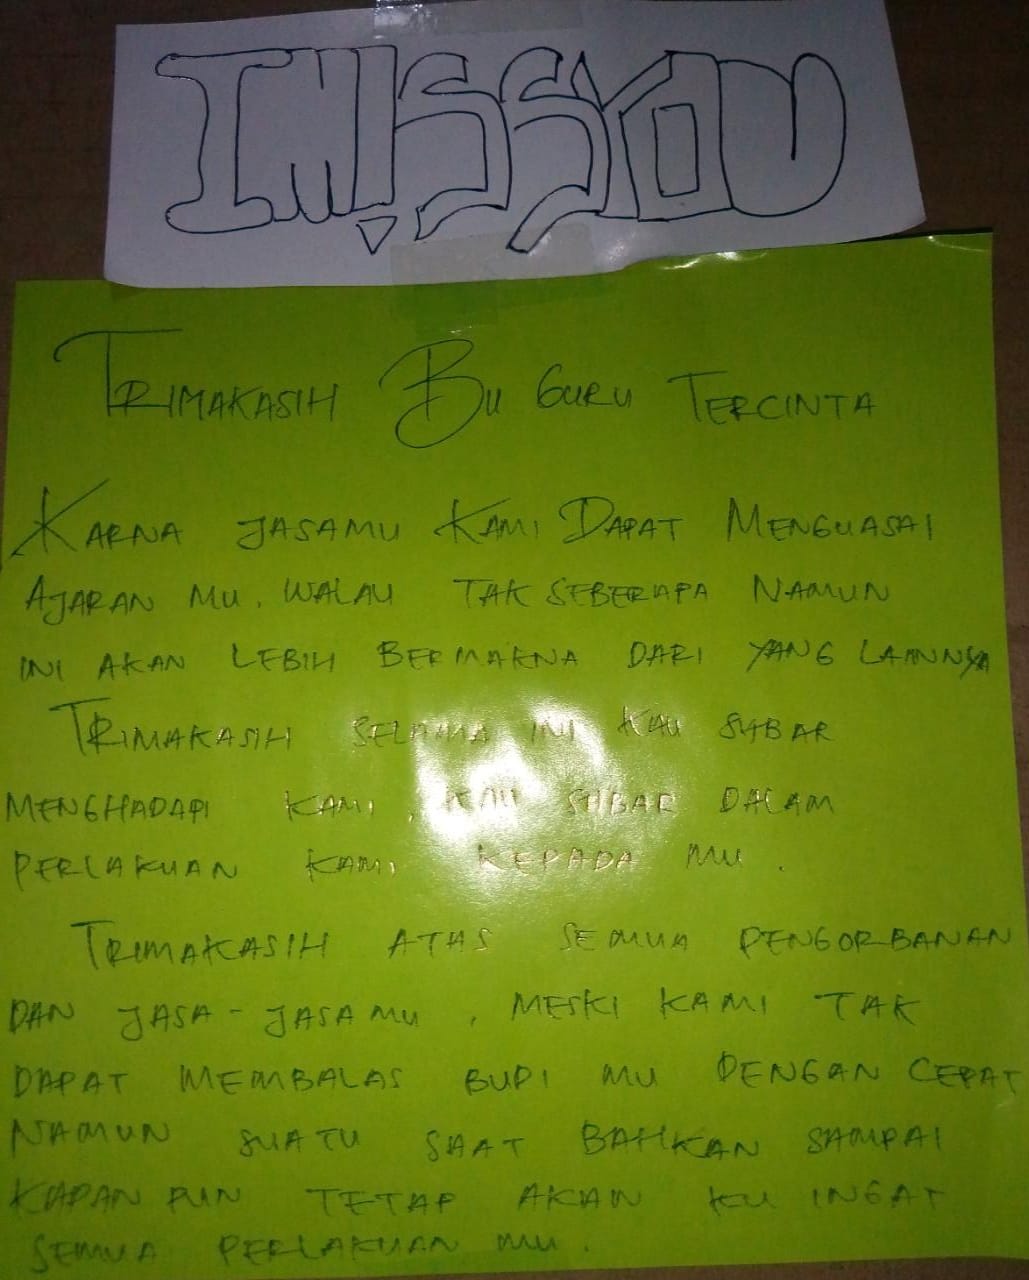 I MISS YOU
TRIMAKASIH BU GURU TERCINTA
KARNA JASAMU KAMI DAPAT MENGUASAI
AJARAN MU. WALAU TAK SEBERAPA NAMUN
INI AKAN LEBIH BERMAKNA DARI YANG LAINNYA
TRIMAKASIH SELAMA INI KAU SABAR
MENGHADAPI KAMI, KAU SABAR DALAM
PERLAKUAN KAMI KEPADA MU.
TRIMAKASIH ATAS SEMUA PENGORBANAN
DAN JASA-JASA MU, MESKI KAMI TAK
DAPAT MEMBALAS BUDI MU DENGAN CEPAT
NAMUN SUATU SAAT BAHKAN SAMPAI
KAPAN PUN TETAP AKAN KU INGAT
SEMUA PERLAKUAN MU.